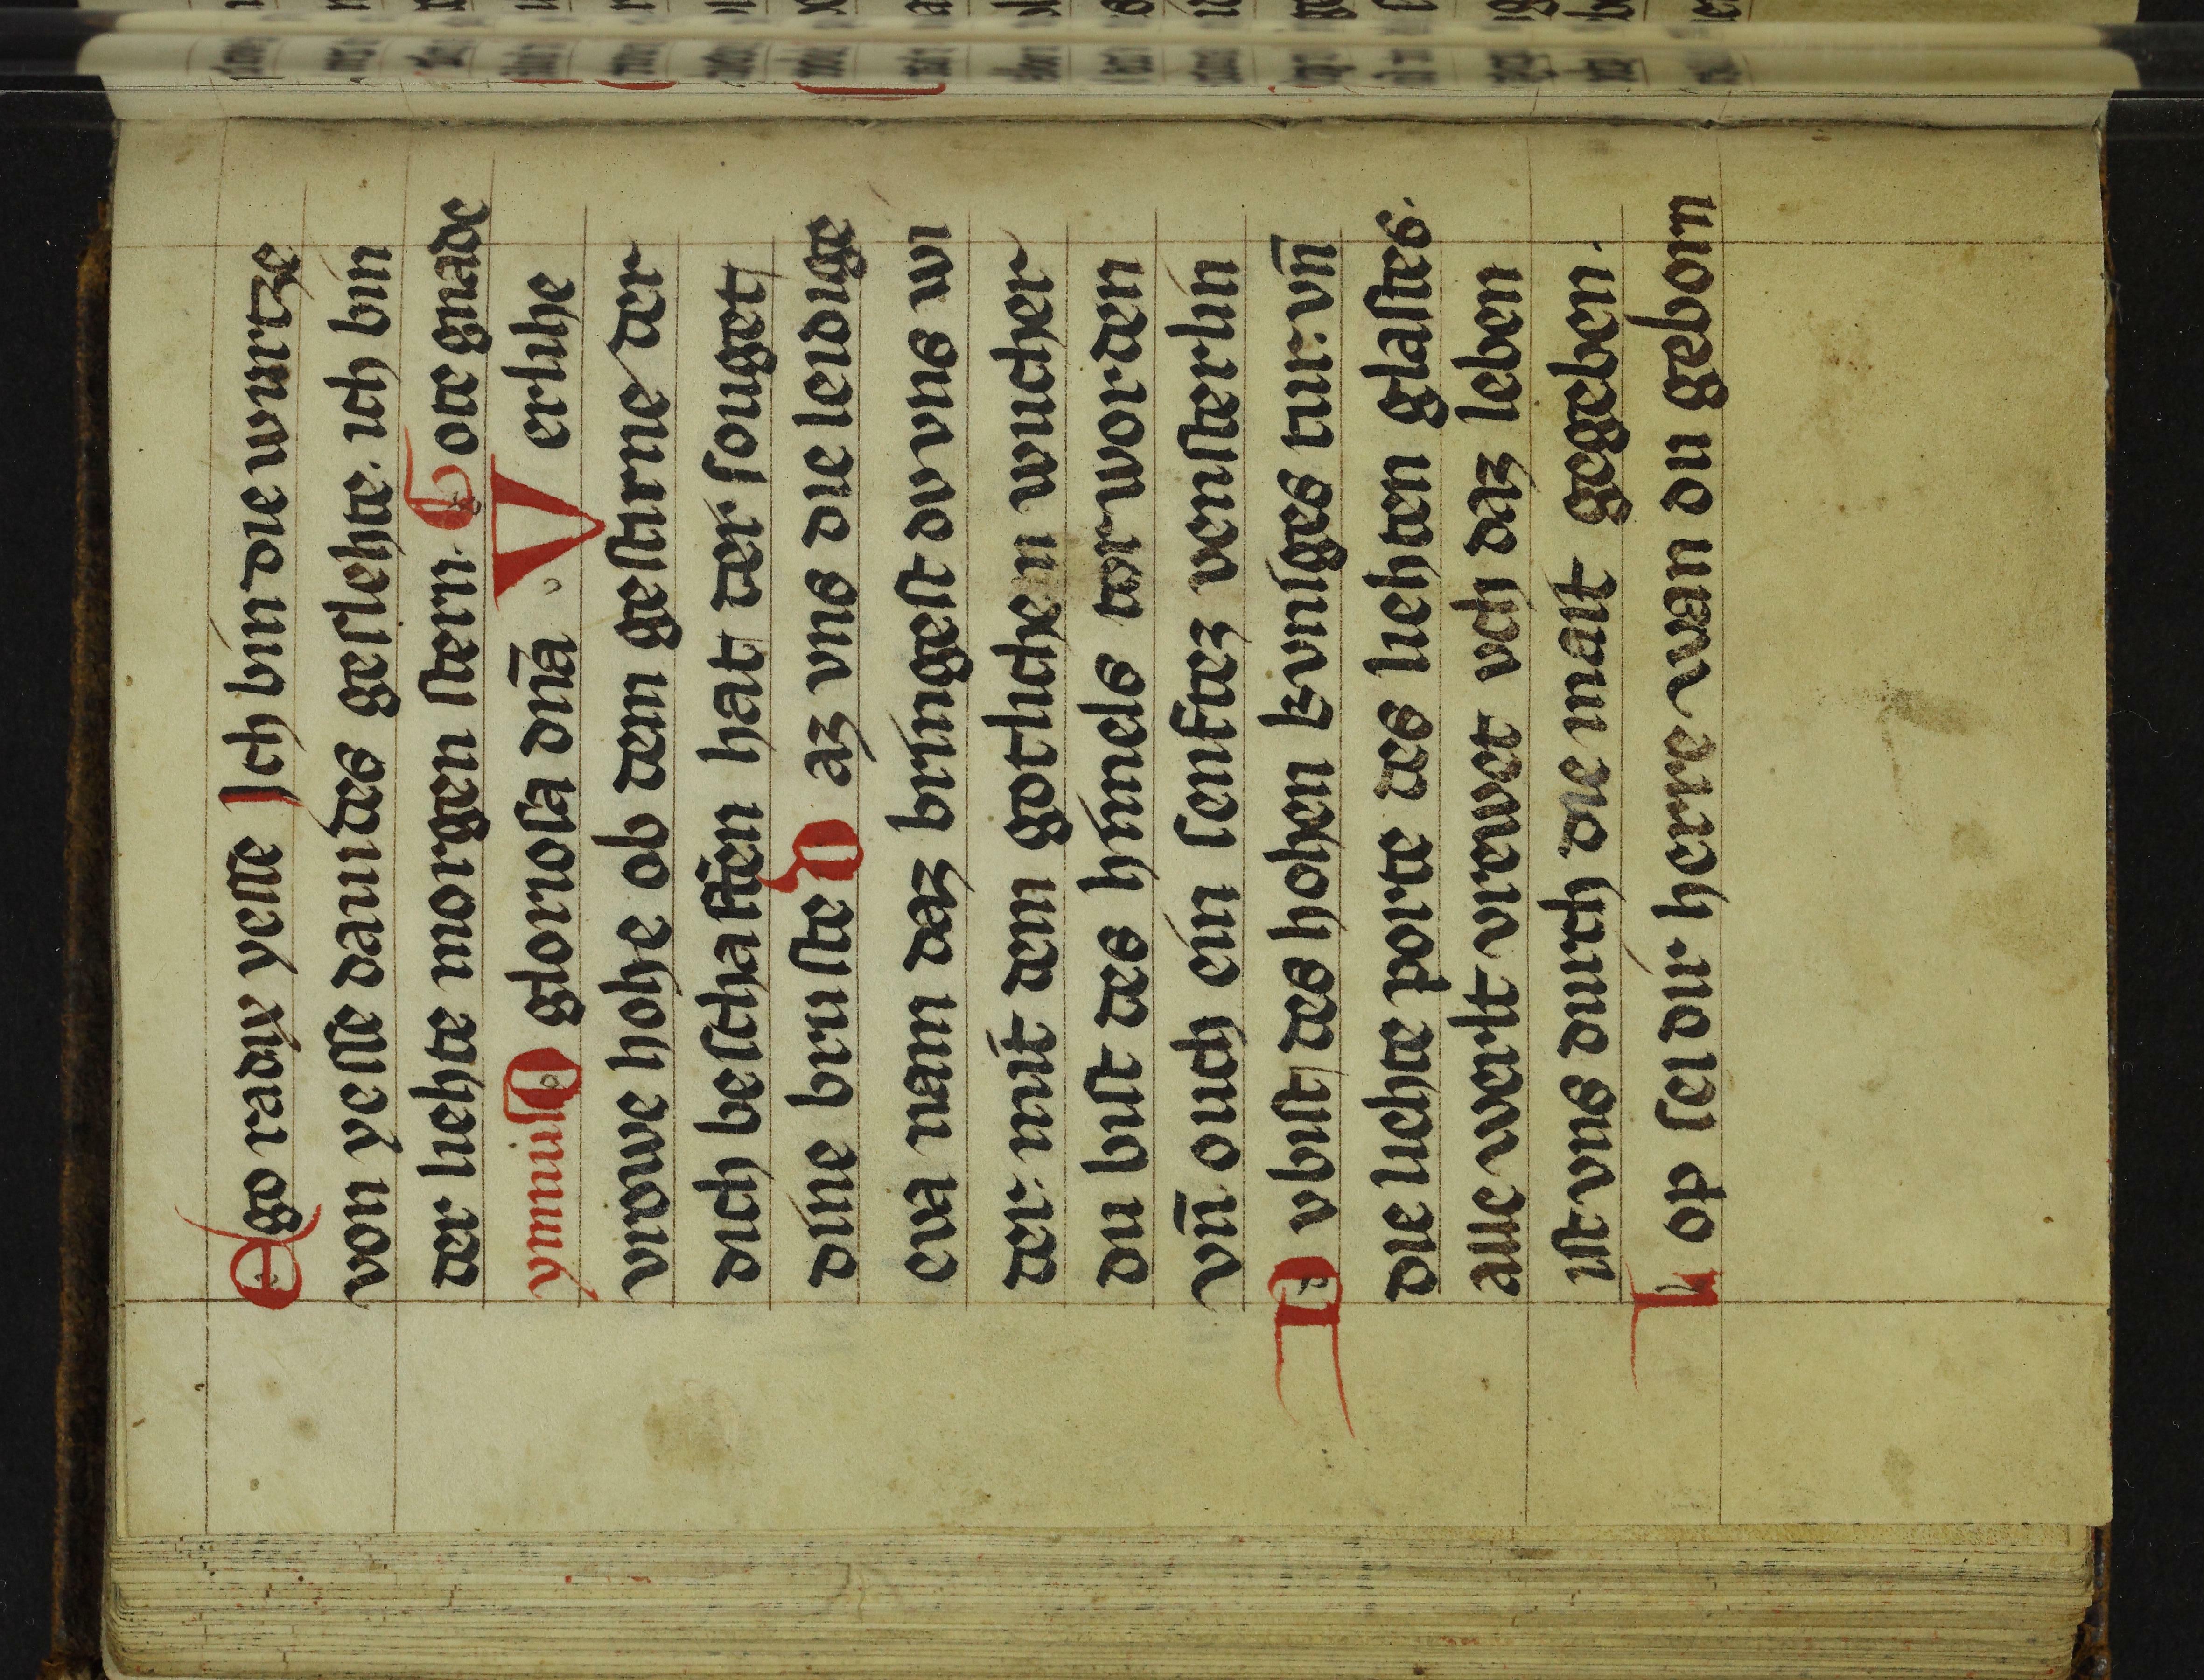 Ego radix yesse Ich bin die wurtze
von yesse dauides geslehte. ich bin
der liehte morgen stern. Gote gnade
ymnus O gloriosa dn̄a Verlihe
vrowe hohe ob dem gestirne der
dich beschaffen hat der souget
dine bruste Daz vns die leidige
eva nam daz bringest dv vns wi
der. mit dem gotlichen wucher
du bist des himels tor worden
vn̄ ouch ein senftez vensterlin
Dv bist des hohen kvniges tur. vn̄
die liehte porte des liehten glastes.
alle werlt vrewet vch daz leben
ist vns durch die mait gegeben.
Lop sei dir herre wan du geborn